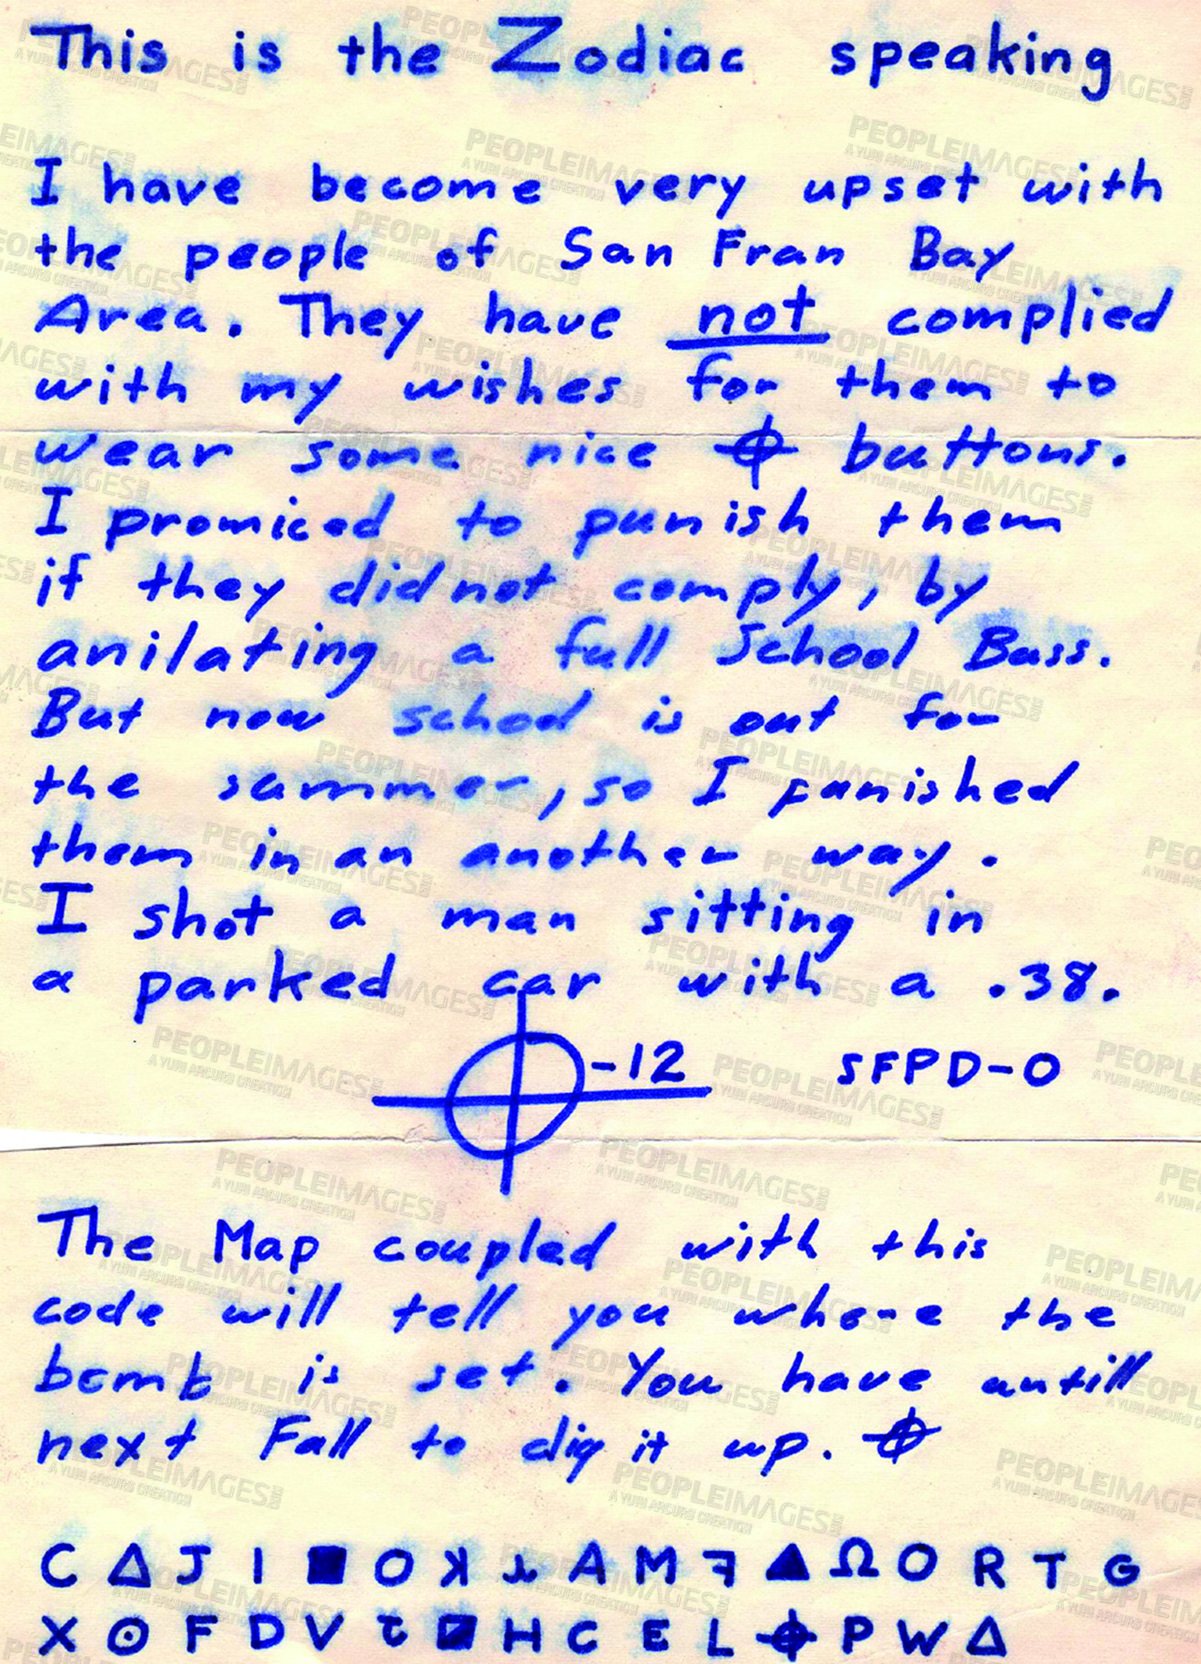 This is the Zodiac speaking
I have become very upset with
the people of San Fran Bay
Area. They have not complied
with my wishes for them to
wear some nice ⌖ buttons.
I promiced to punish them
if they did not comply, by
anilating a full School Buss.
But now school is out for
the summer, so I punished
them in an another way.
I shot a man sitting in
a parked car with a .38.
⌖-12 SFPD-0
The Map coupled with this
code will tell you where the
bomb is set. You have untill
next Fall to dig it up. ⌖
C Δ J I ■ O ꓘ ⅄ A M ꟻ ▲ Ω O R T G
X ⊙ F D V ◪ H C E L ⌖ P W Δ
PEOPLEIMAGES.COM
A YURI ARCURS CREATION